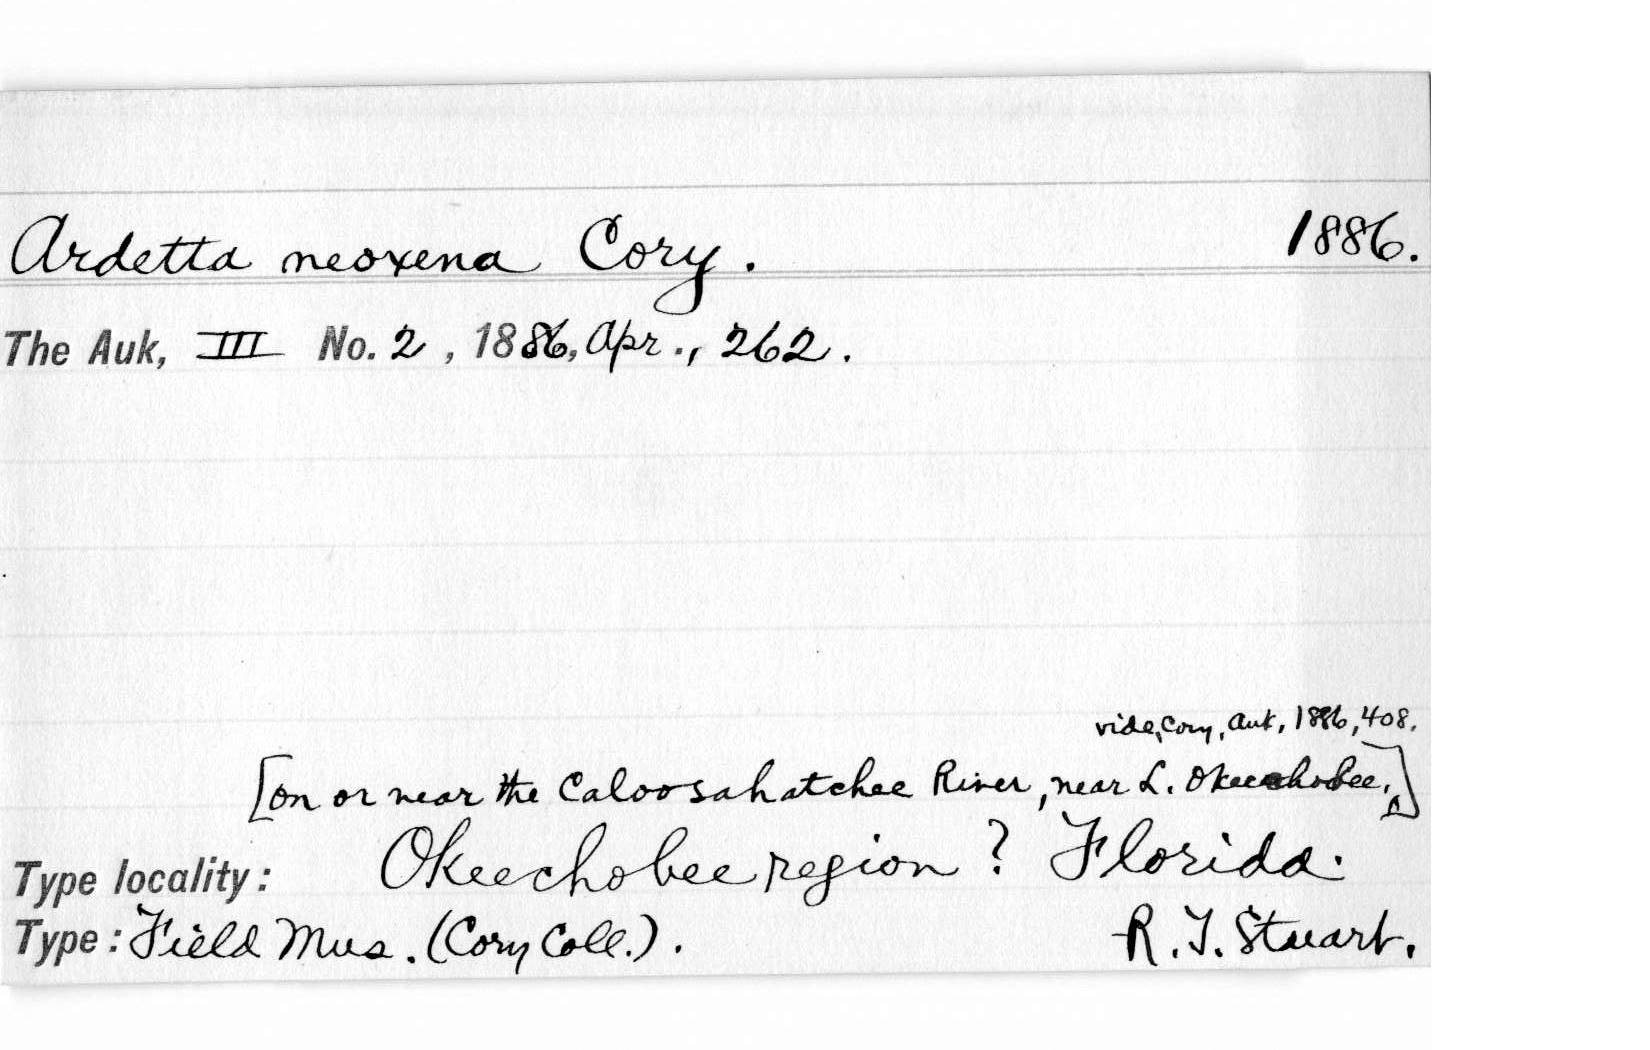 Ardetta neoxena Cory. 1886.
The Auk, III No. 2, 1886, Apr., 262.
vide, Cory, Auk, 1886, 408.
[on or near the Caloosahatchee River, near L. Okeechobee.]
Type locality: Okeechobee region? Florida.
Type: Field Mus. (Cory Coll.). R. T. Stuart.